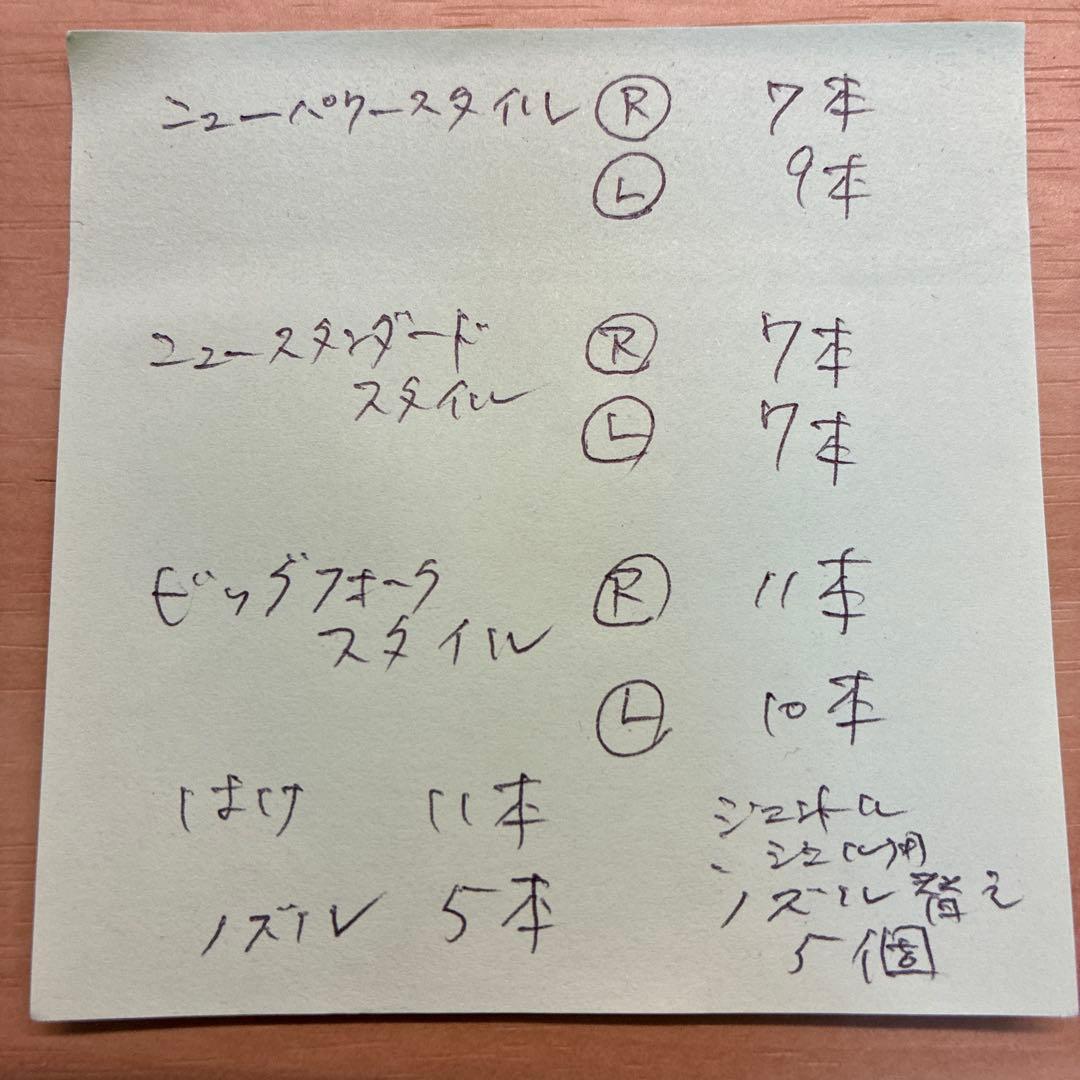 ニューパワースタイル Ⓡ 7本
Ⓛ 9本
ニュースタンダード Ⓡ 7本
スタイル
Ⓛ 7本
ビッグフォーク Ⓡ 11本
スタイル
Ⓛ 10本
はけ 11本
ノズル 5本
ジェントル
ジェル用
ノズル替え
5個